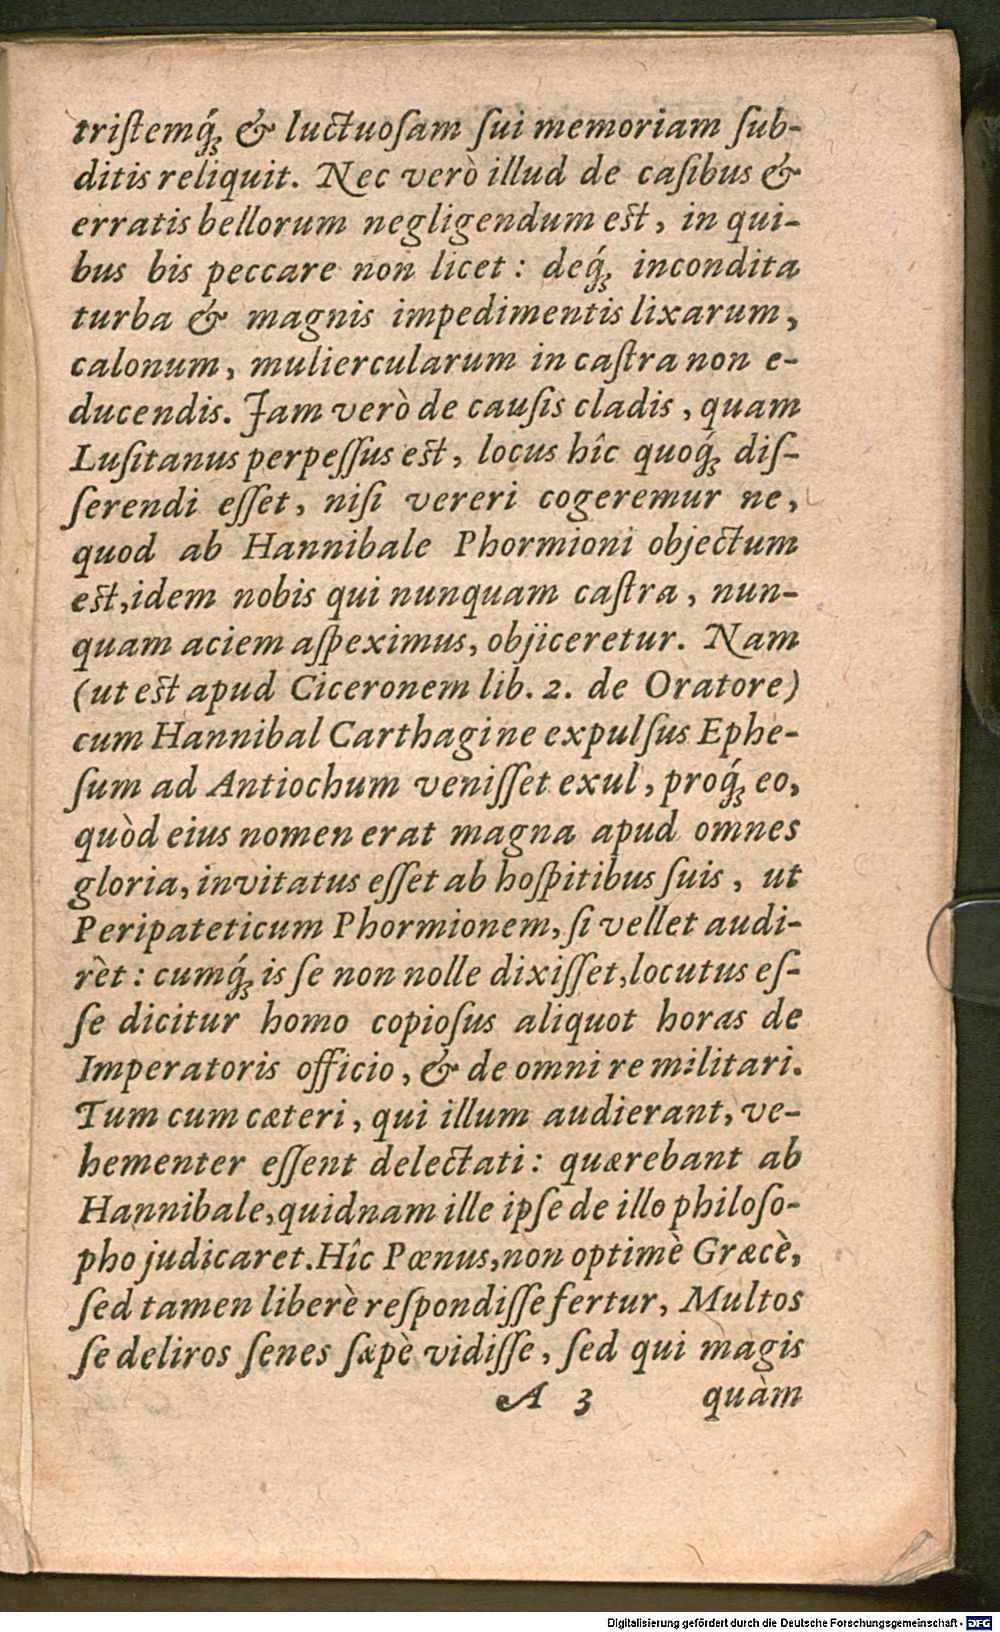 triſtemq́; & luctuoſam ſui memoriam ſub-
ditis reliquit. Nec verò illud de caſibus &
erratis bellorum negligendum est, in qui-
bus bis peccare non licet: deq́; incondita
turba & magnis impedimentis lixarum,
calonum, muliercularum in caſtra non e-
ducendis. Jam verò de cauſis cladis, quam
Luſitanus perpeſſus est, locus hîc quoq́; diſ-
ſerendi eſſet, niſi vereri cogeremur ne,
quod ab Hannibale Phormioni objectum
est, idem nobis qui nunquam caſtra, nun-
quam aciem aſpeximus, objiceretur. Nam
(ut est apud Ciceronem lib. 2. de Oratore)
cum Hannibal Carthagine expulſus Ephe-
ſum ad Antiochum veniſſet exul, proq́; eo,
quòd eius nomen erat magna apud omnes
gloria, invitatus eſſet ab hoſpitibus ſuis, ut
Peripateticum Phormionem, ſi vellet audi-
rèt: cumq́; is ſe non nolle dixiſſet, locutus eſ-
ſe dicitur homo copioſus aliquot horas de
Imperatoris officio, & de omni re militari.
Tum cum cæteri, qui illum audierant, ve-
hementer eſſent delectati: quærebant ab
Hannibale, quidnam ille ipſe de illo philoſo-
pho judicaret. Hîc Pœnus, non optimè Græcè,
ſed tamen liberè reſpondiſſe fertur, Multos
ſe deliros ſenes ſæpè vidiſſe, ſed qui magis
A 3 quàm
Digitalisierung gefördert durch die Deutsche Forschungsgemeinschaft - DFG